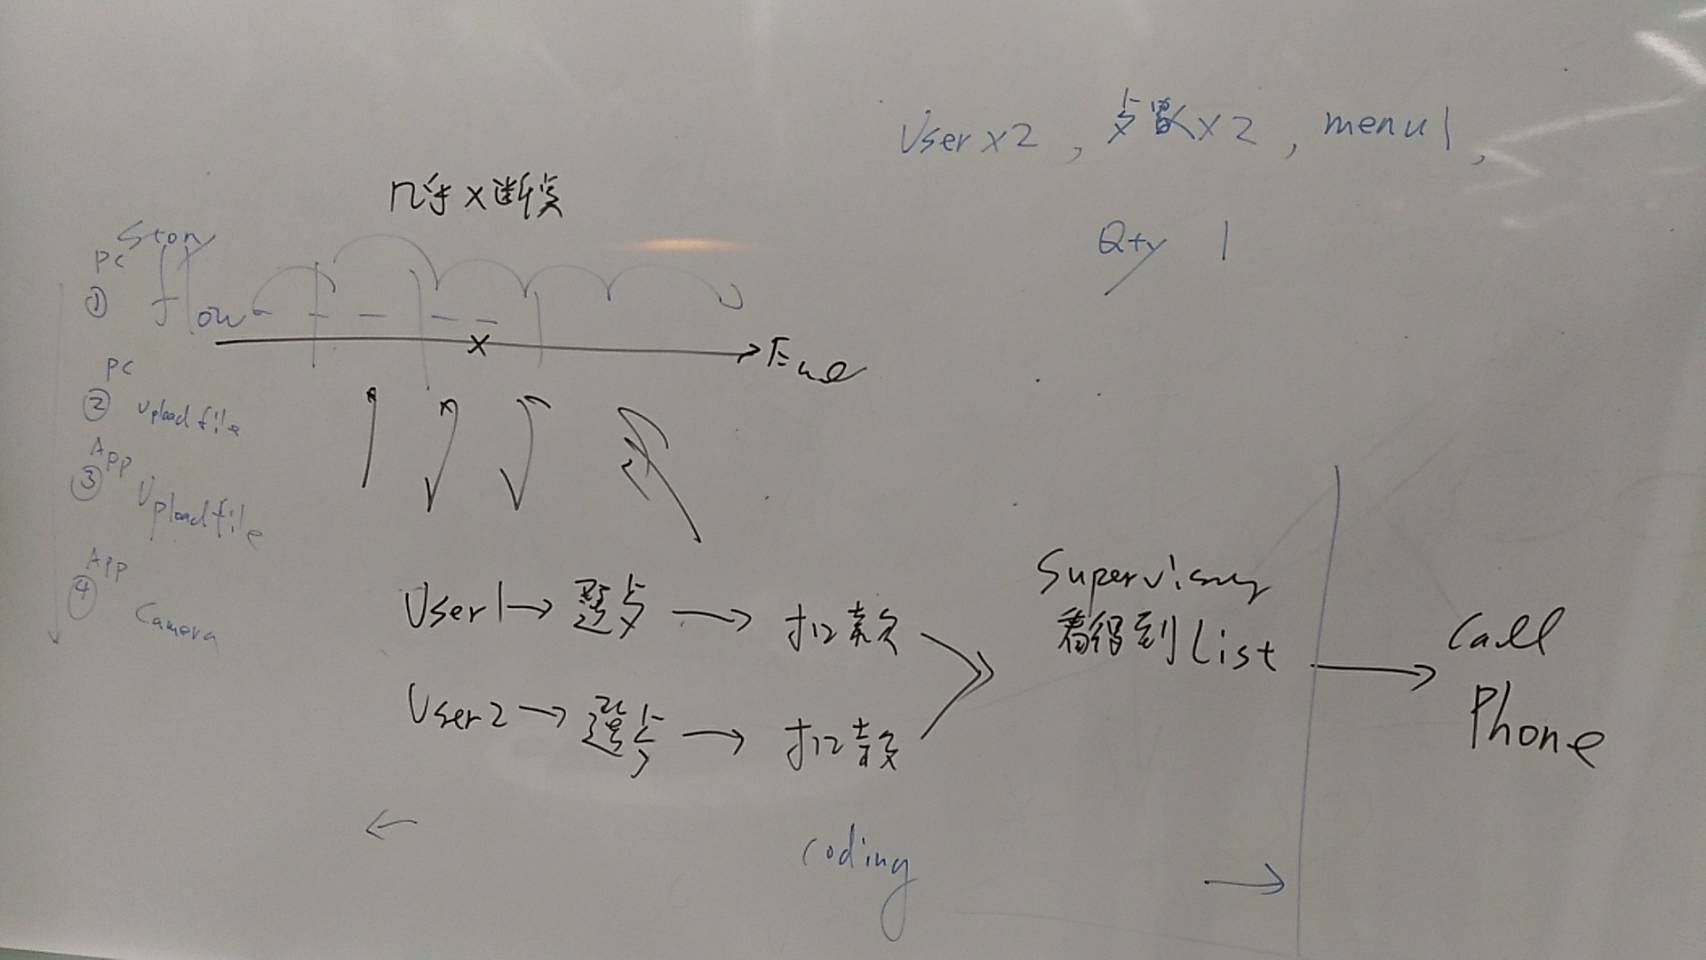 User x 2 , 点數 x 2 , menu 1 ,
Qty 1
Story
PC
① flow
PC
② Upload file
App
③ Upload file
App
④ Camera
User 1 → 選点 → 扣款
User 2 → 選点 → 扣款
看得到 List
Call
Phone
← coding →